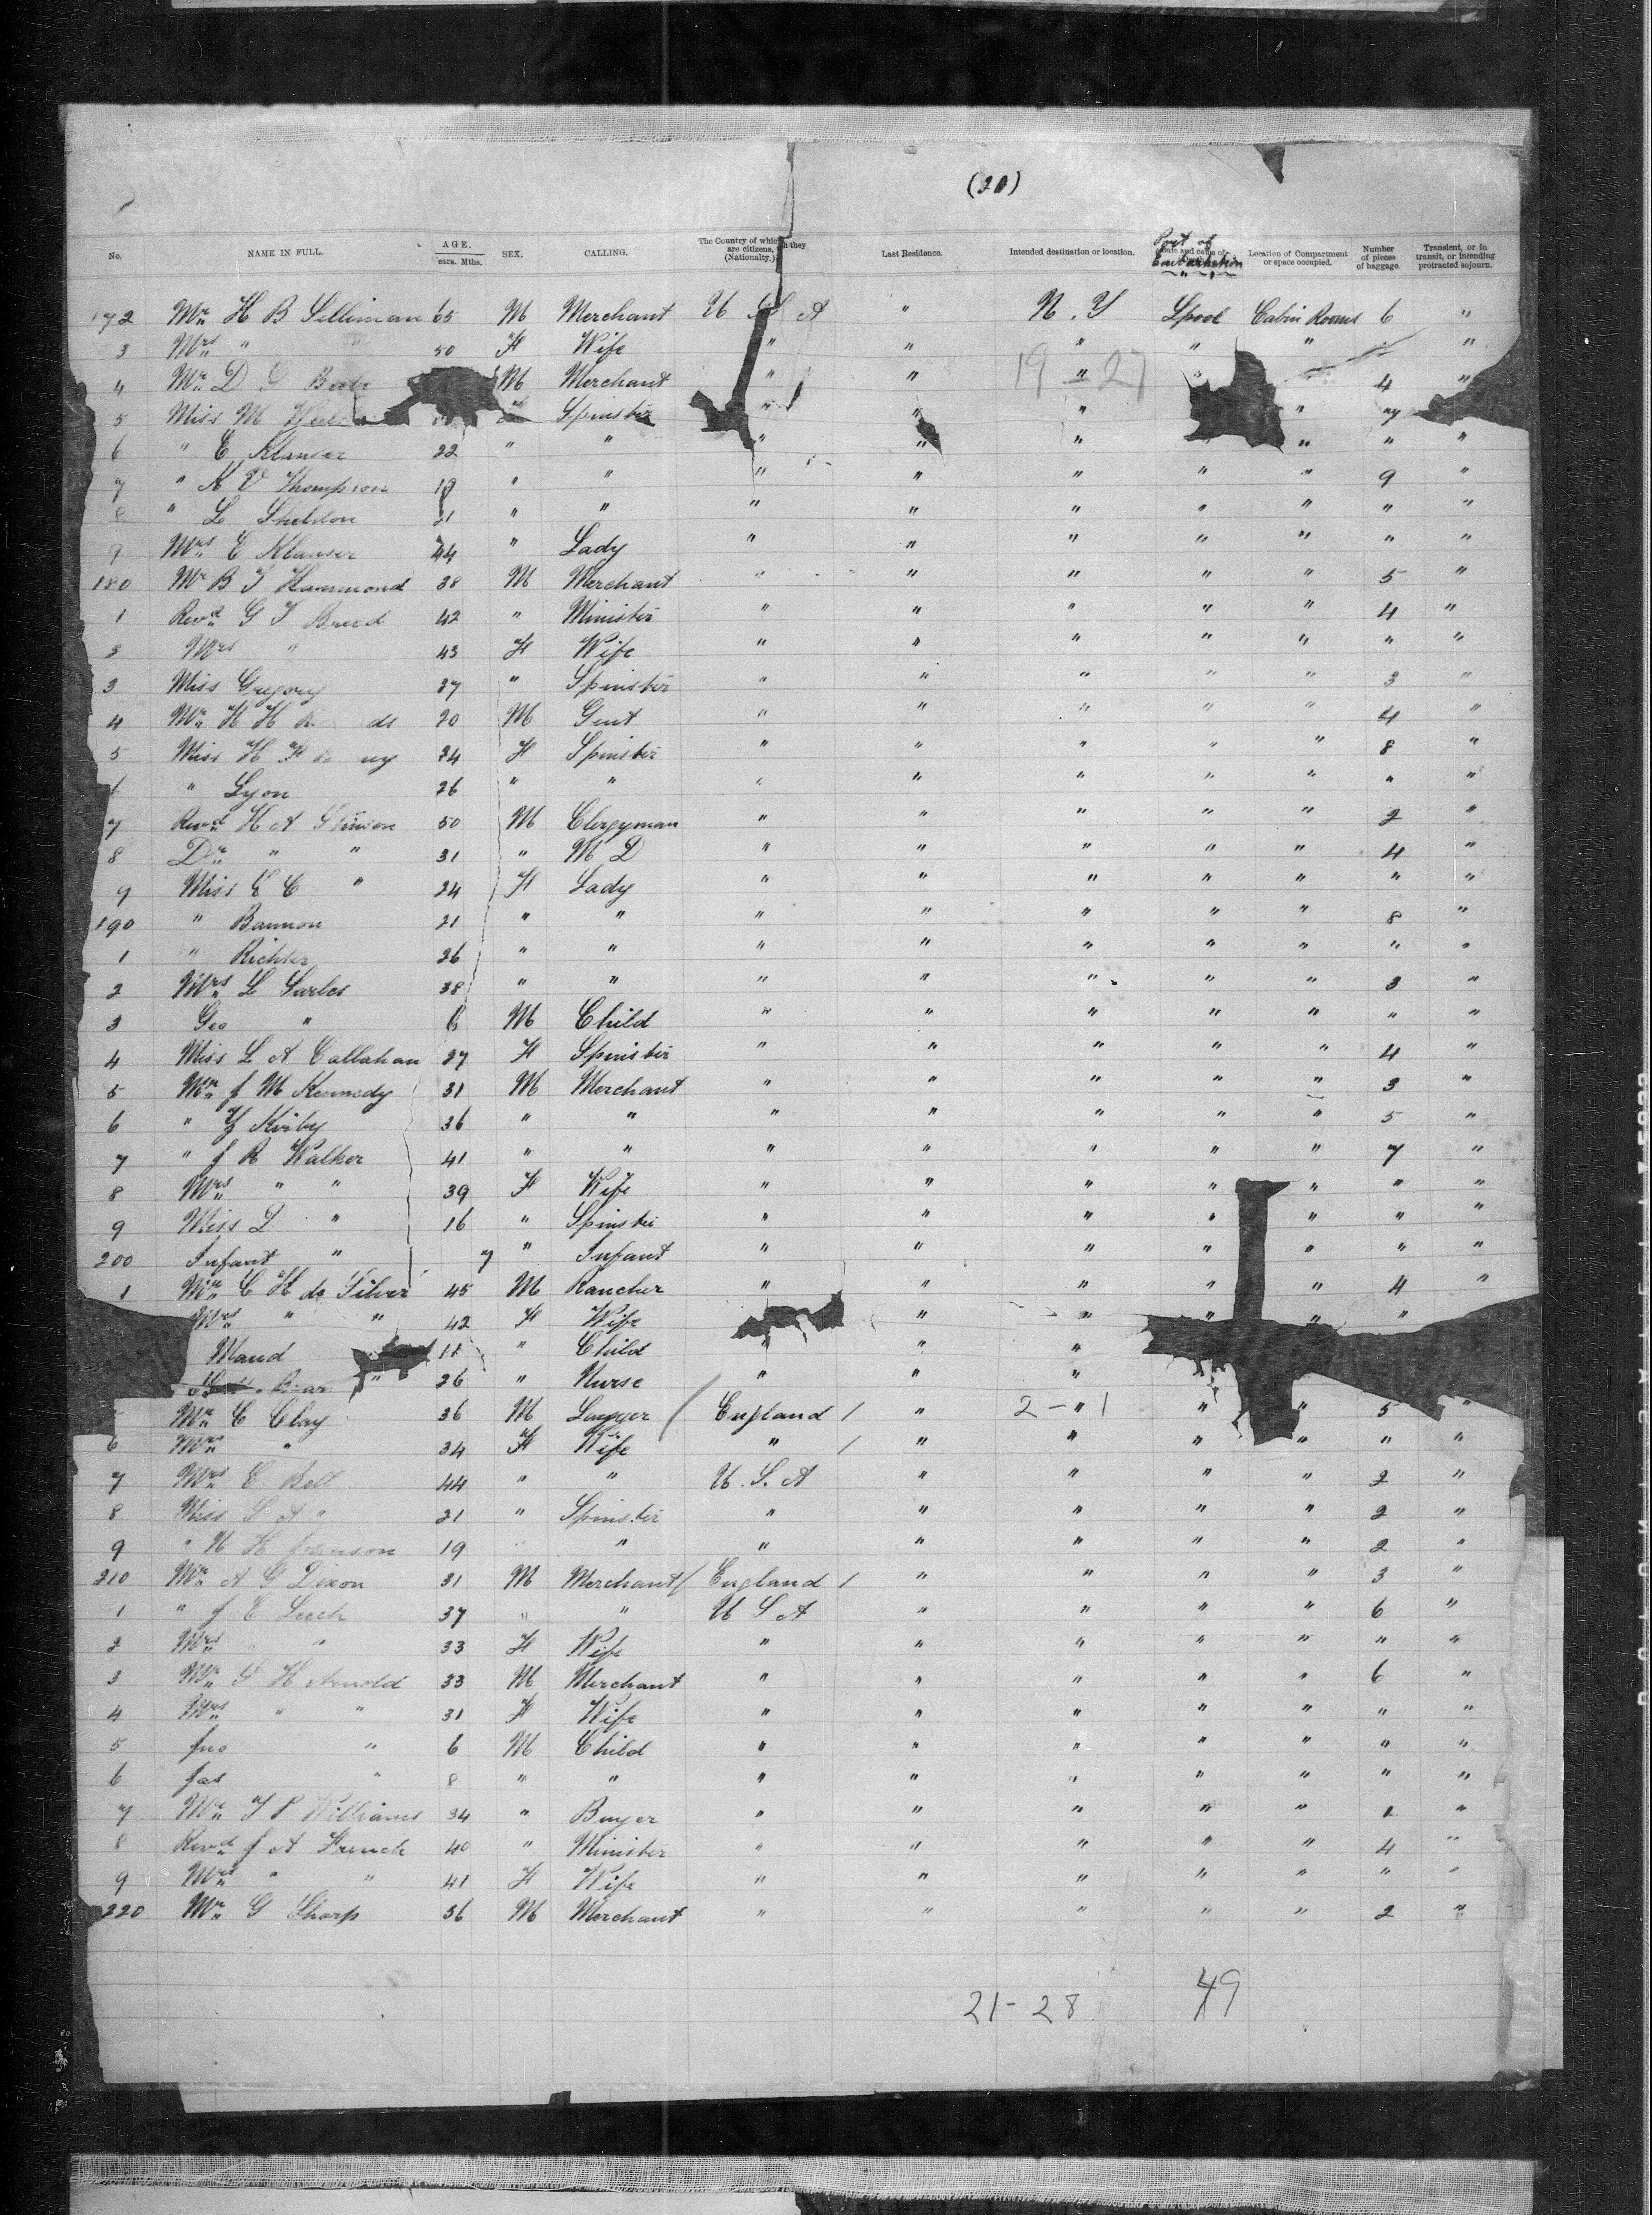 (20)
No. NAME IN FULL. AGE. ears. Mths. SEX. CALLING. The Country of which they are citizens, (Nationalty.) Last Residence. Intended destination or location. Port of Embarkation Location of Compartment or space occupied. Number of pieces of baggage. Transient, or in transit, or intending protracted sojourn.
172 Mr H B Silliman 65 M Merchant U S A " N. Y Lpool Cabin Rooms 6 "
3 Mrs " " 50 F Wife " " " " " "
4 Mr D G M Merchant " " 19 " 27 " 4 "
5 Miss M Spinster " " " " "
6 " C Klauser 22 " " " " " " " "
7 " K V Thompson 19 " " " " " " " 9 "
8 " L Sheldon 21 " " " " " " " " "
9 Mrs C Klauser 44 " Lady " " " " " " "
180 Mr B T Hammond 38 M Merchant " " " " " 5 "
1 Revd G T Breed 42 " Minister " " " " " 4 "
2 Mrs " 43 F Wife " " " " " " "
3 Miss Gregory 27 " Spinster " " " " " 3 "
4 Mr H H ds 20 M Gent " " " " " 4 "
5 Miss H F ny 24 F Spinster " " " " " 8 "
6 " Lyon 26 " " " " " " " " "
7 Revd H A Stimson 50 M Clergyman " " " " " 2 "
8 Dr " " 31 " M D " " " " " 4 "
9 Miss E C " 24 F Lady " " " " " " "
190 " Bannon 21 " " " " " " " 8 "
1 " Richter 26 " " " " " " " " "
2 Mrs L Surles 38 " " " " " " " 3 "
3 Geo " 6 M Child " " " " " " "
4 Miss L A Callahan 27 F Spinster " " " " " 4 "
5 Mr J M Kennedy 31 M Merchant " " " " " 3 "
6 " Kirby 36 " " " " " " " 5 "
7 " J R Walker 41 " " " " " " " 7 "
8 Mrs " " 39 F Wife " " " " " " "
9 Miss D " 16 " Spinster " " " " " " "
200 Infant " 7 " Infant " " " " " " "
1 Mr C H de Silver 45 M Rancher " " " " " 4 "
Mrs " " 42 F Wife " " " " "
Maud 11 " Child " " "
" 26 " Nurse " " "
Mr C Clay 36 M Lawyer ( England / " 2 - " 1 " " 5 "
6 Mrs " 34 F Wife " / " " " " " "
7 Mrs E Bell 44 " " U. S. A " " " " 2 "
8 Miss S A " 21 " Spinster " " " " " 2 "
9 " N H Johnson 19 " " " " " " " 2 "
210 Mr A G Dixon 31 M Merchant ( England / " " " " 3 "
1 " J E Lerch 37 " " U S A " " " " 6 "
2 Mrs " " 33 F Wife " " " " " " "
3 Mr S H Arnold 33 M Merchant " " " " " 6 "
4 Mrs " " 31 F Wife " " " " " " "
5 Jno " 6 M Child " " " " " " "
6 Jas " 8 " " " " " " " " "
7 Mr T P Williams 34 " Buyer " " " " " 1 "
8 Revd J A French 40 " Minister " " " " " 4 "
9 Mrs " " 41 F Wife " " " " " " "
220 Mr G Sharp 56 M Merchant " " " " " 2 "
21-28 49